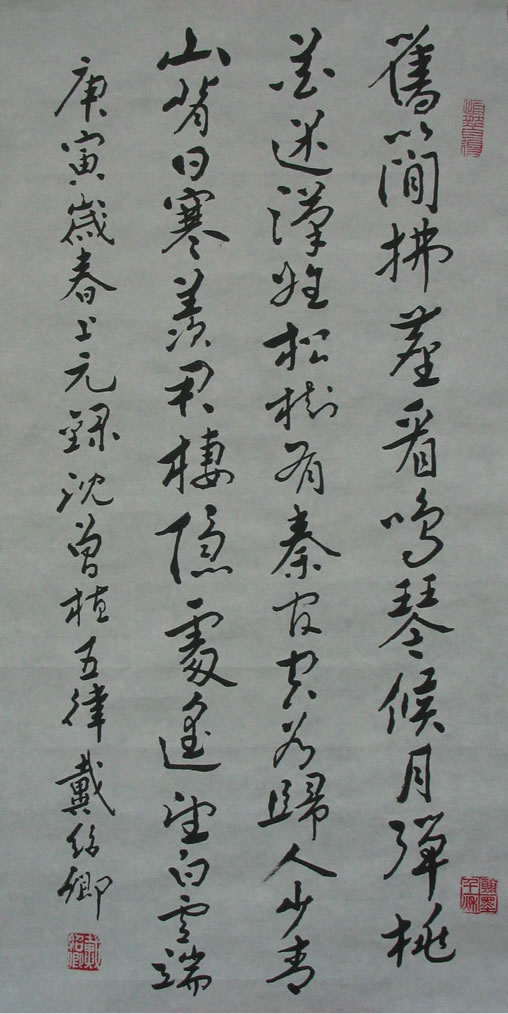 舊簡拂塵看鳴琴候月彈桃
花迷漢姓松樹有秦官空谷歸人少青
山背日寒羨君棲隱處遙望白雲端
庚寅歲春上元錄沈曾植五律戴紹卿
戴紹卿